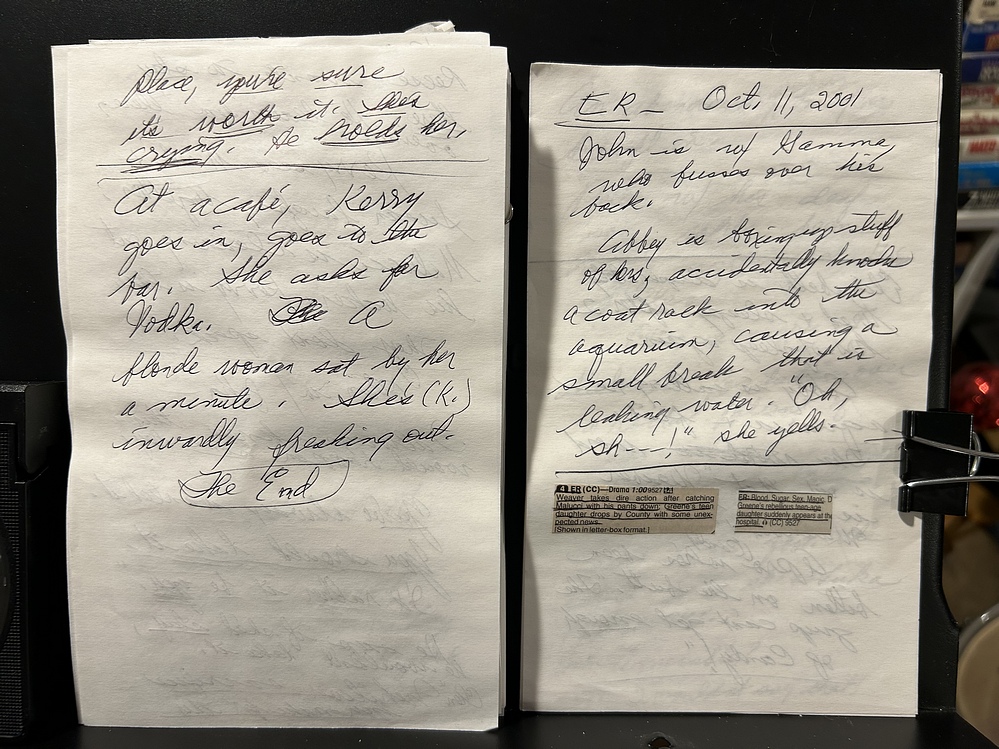 place, you're sure
it's worth it. She's
crying. He holds her,
At a café, Kerry
goes in, goes to the
bar. She asks for
Vodka. A
blonde woman sat by her
a minute. She's (K.)
inwardly freaking out.
The End
ER - Oct. 11, 2001
John is w/ Gamma,
who fusses over his
back.
Abbey is boxing up stuff
of hrs, accidentally knocks
a coat rack into the
aquarium, causing a
small break that is
leaking water. "Oh,
sh---!" she yells.
4 ER (CC)—Drama 1:00 9527
Weaver takes dire action after catching
Malucci with his pants down; Greene's teen
daughter drops by County with some unex-
pected news.
[Shown in letter-box format.]
ER: Blood, Sugar, Sex, Magic D
Greene's rebellious teen-age
daughter suddenly appears at the
hospital. (CC) 9527